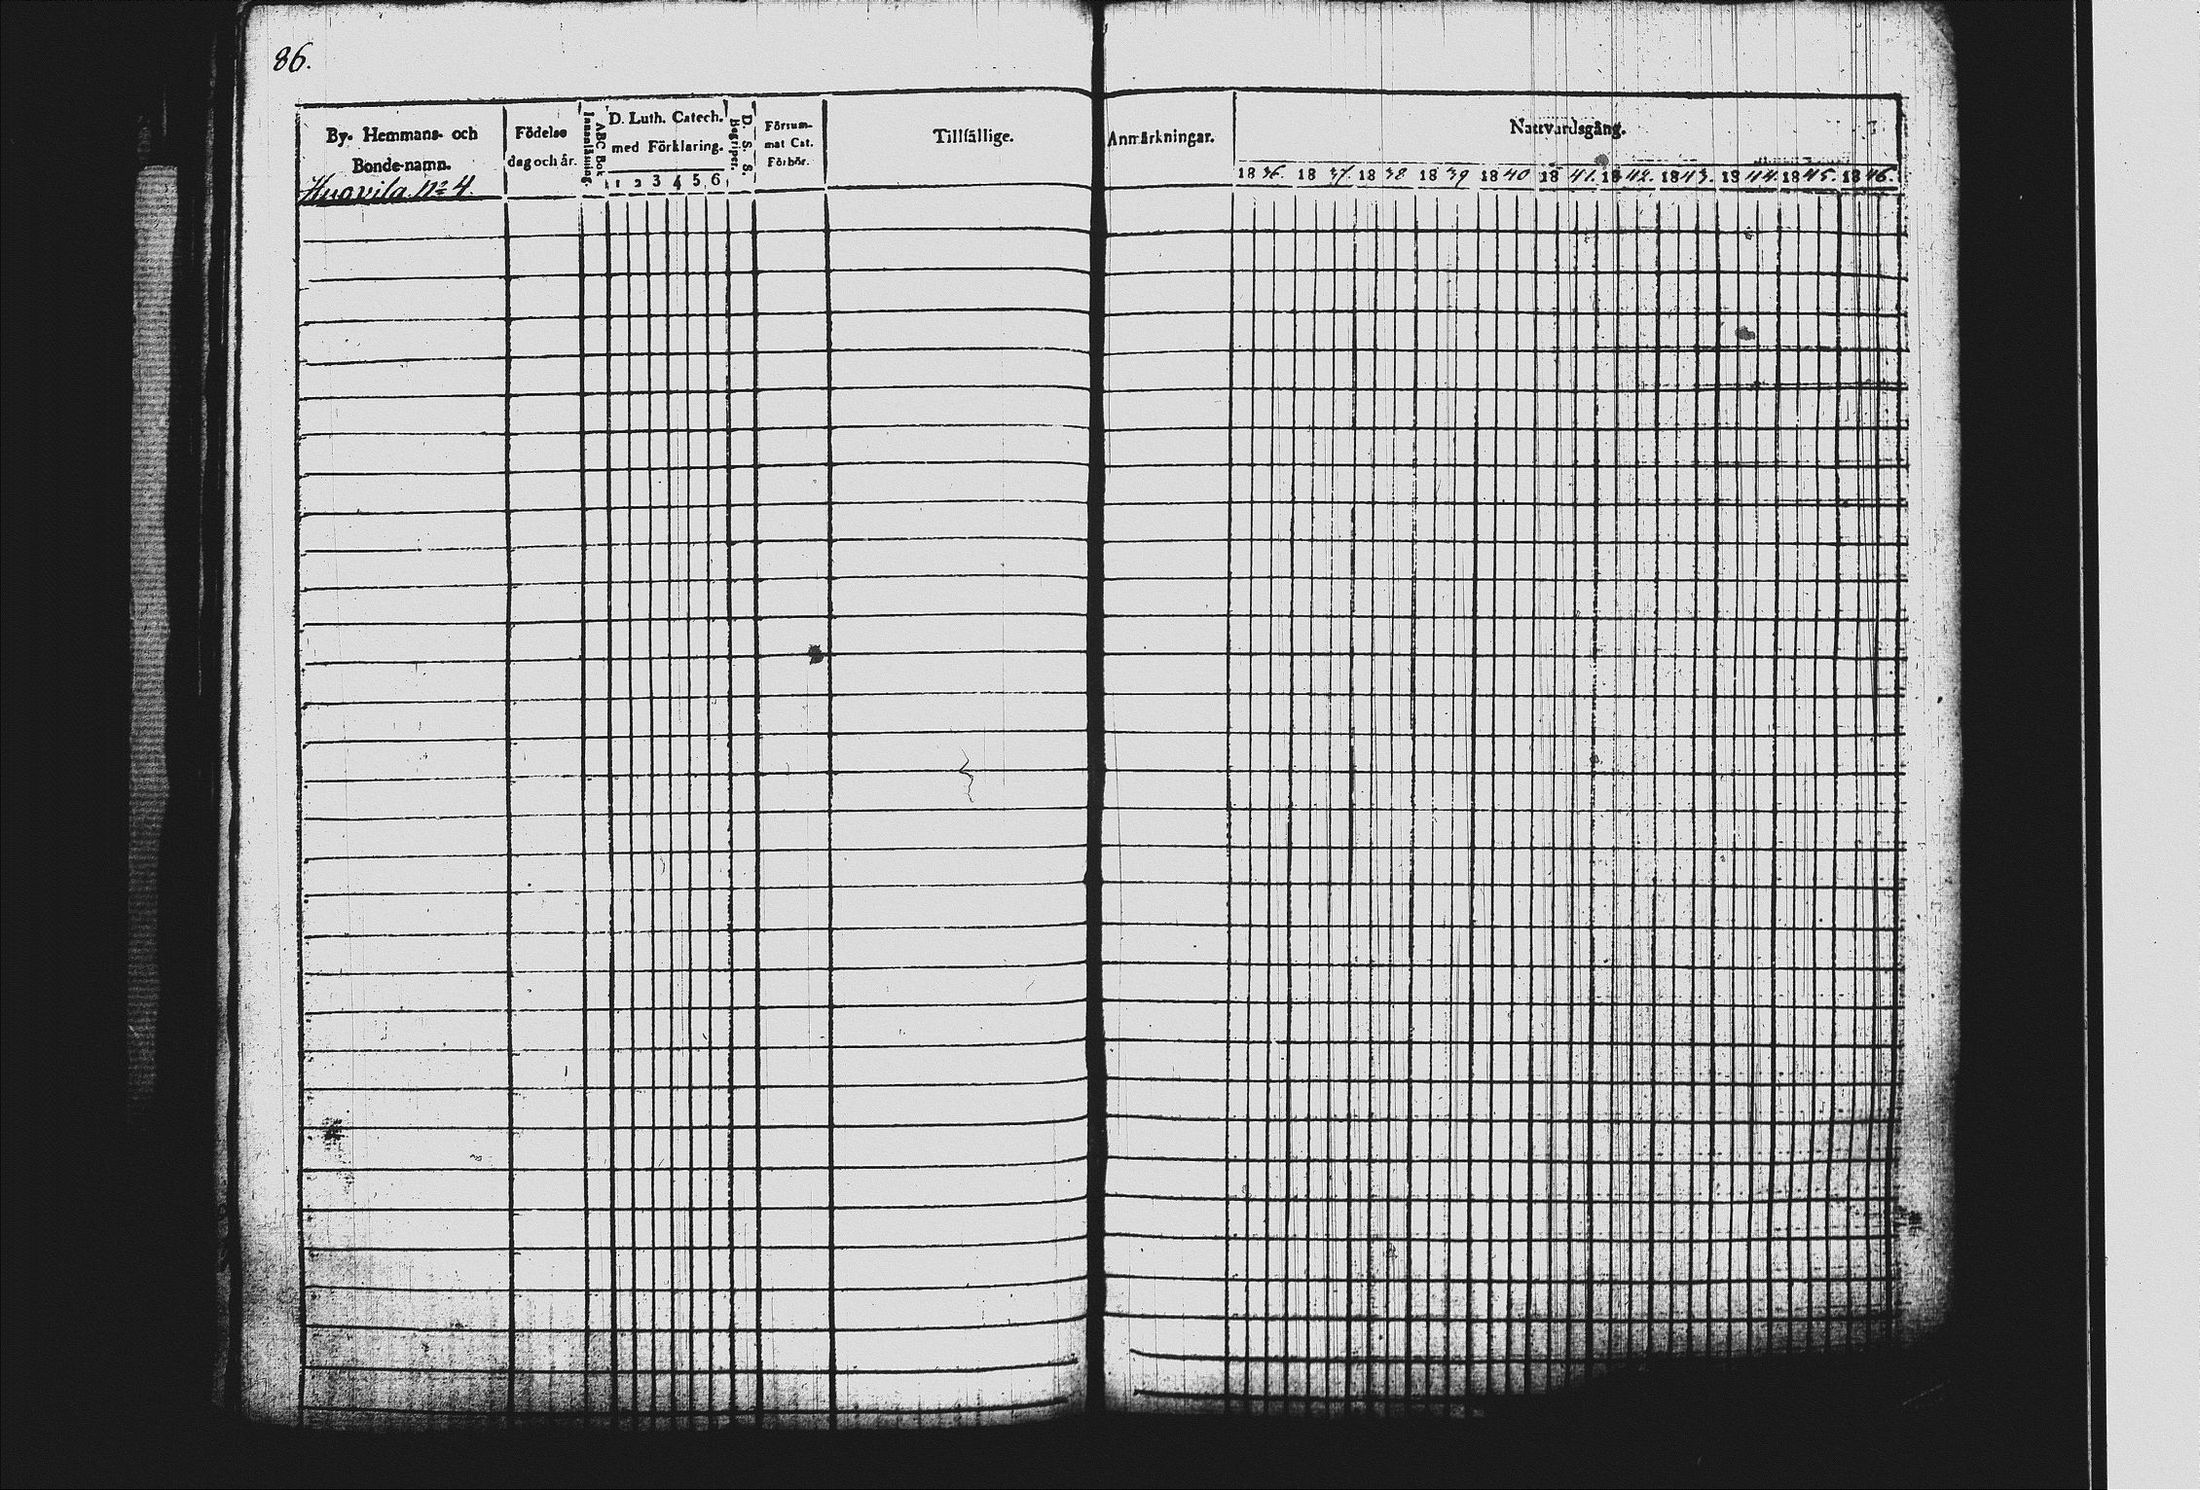 86.
By- Hemmans- och
Bonde-namn.
Födelse
dag och år.
ABC Bok
Innanläsning.
D. Luth. Catech.
med Förklaring.
1 2 3 4 5 6
D. S. S.
Begriper.
Försum-
mat Cat.
Förhör.
Tillfällige.
Anmärkningar.
Nattvardsgång.
1836. 1837. 1838 1839 1840 1841. 1842. 1843. 1844. 1845. 1846.
Huovila No 4.